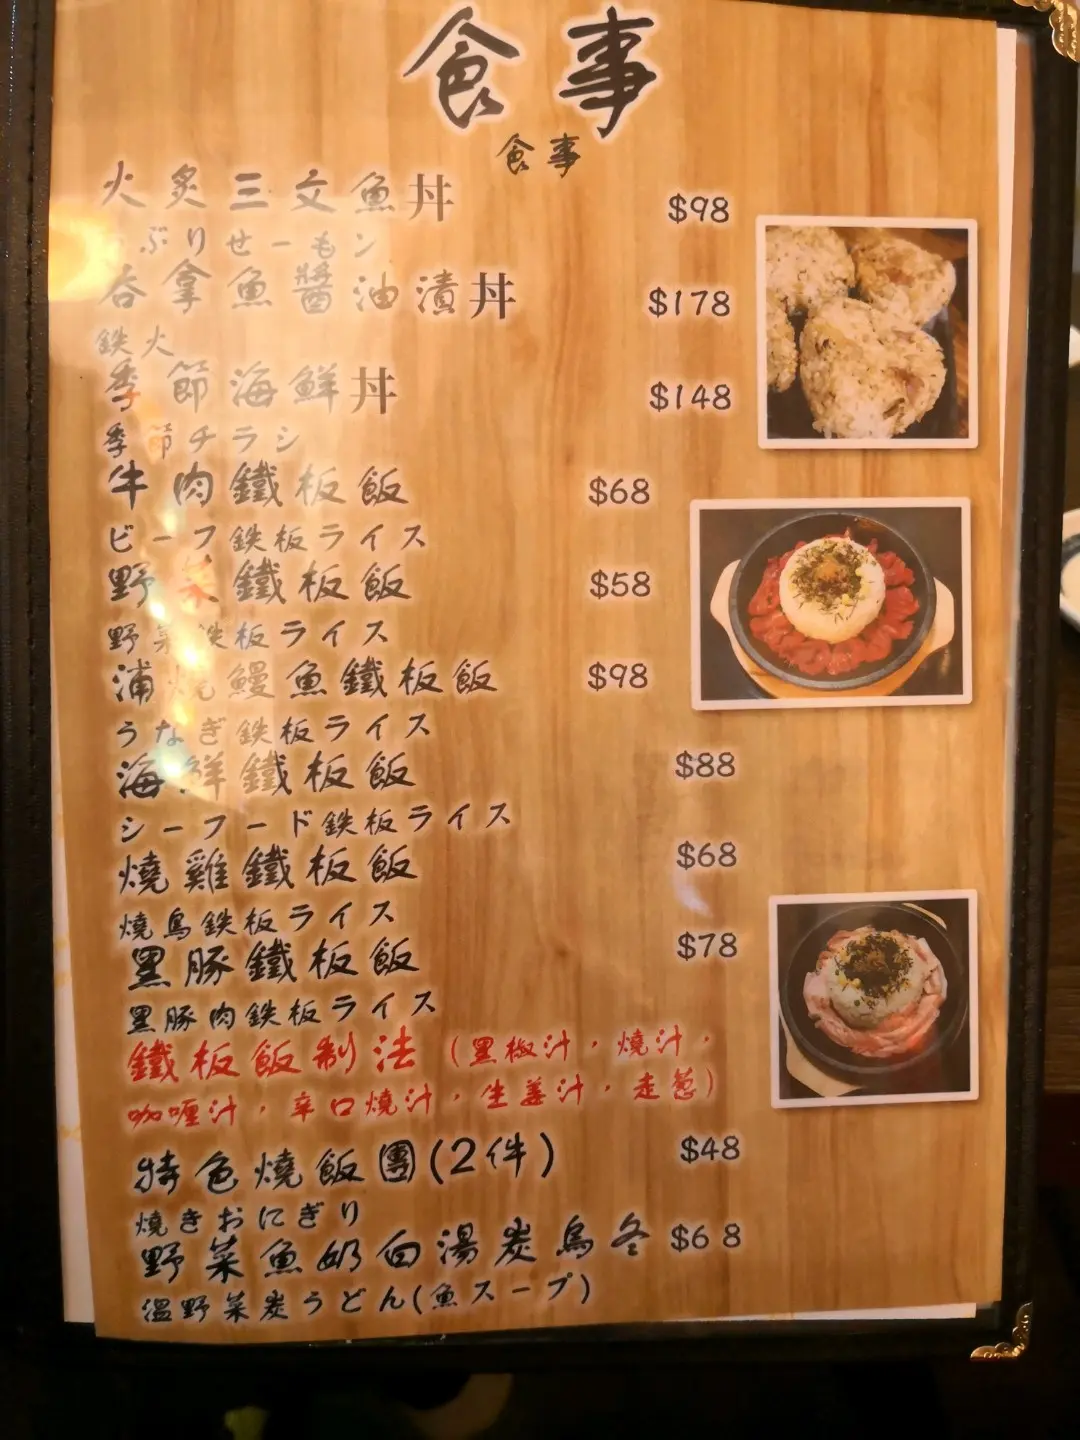 食事
食事
火炙三文魚丼 $98
ぶりせーもン
吞拿魚醬油漬丼 $178
鉄火
季節海鮮丼 $148
季節チラシ
牛肉鐵板飯 $68
ビーフ鉄板ライス
野菜鐵板飯 $58
野菜鉄板ライス
浦燒鰻魚鐵板飯 $98
うなぎ鉄板ライス
海鮮鐵板飯 $88
シーフード鉄板ライス
燒雞鐵板飯 $68
燒鳥鉄板ライス
黑豚鐵板飯 $78
黑豚肉鉄板ライス
鐵板飯制法（黑椒汁，燒汁，
咖喱汁，辛口燒汁，生姜汁，走葱）
特色燒飯團(2件) $48
燒きおにぎり
野菜魚奶白湯炭烏冬 $68
温野菜炭うどん(魚スープ)